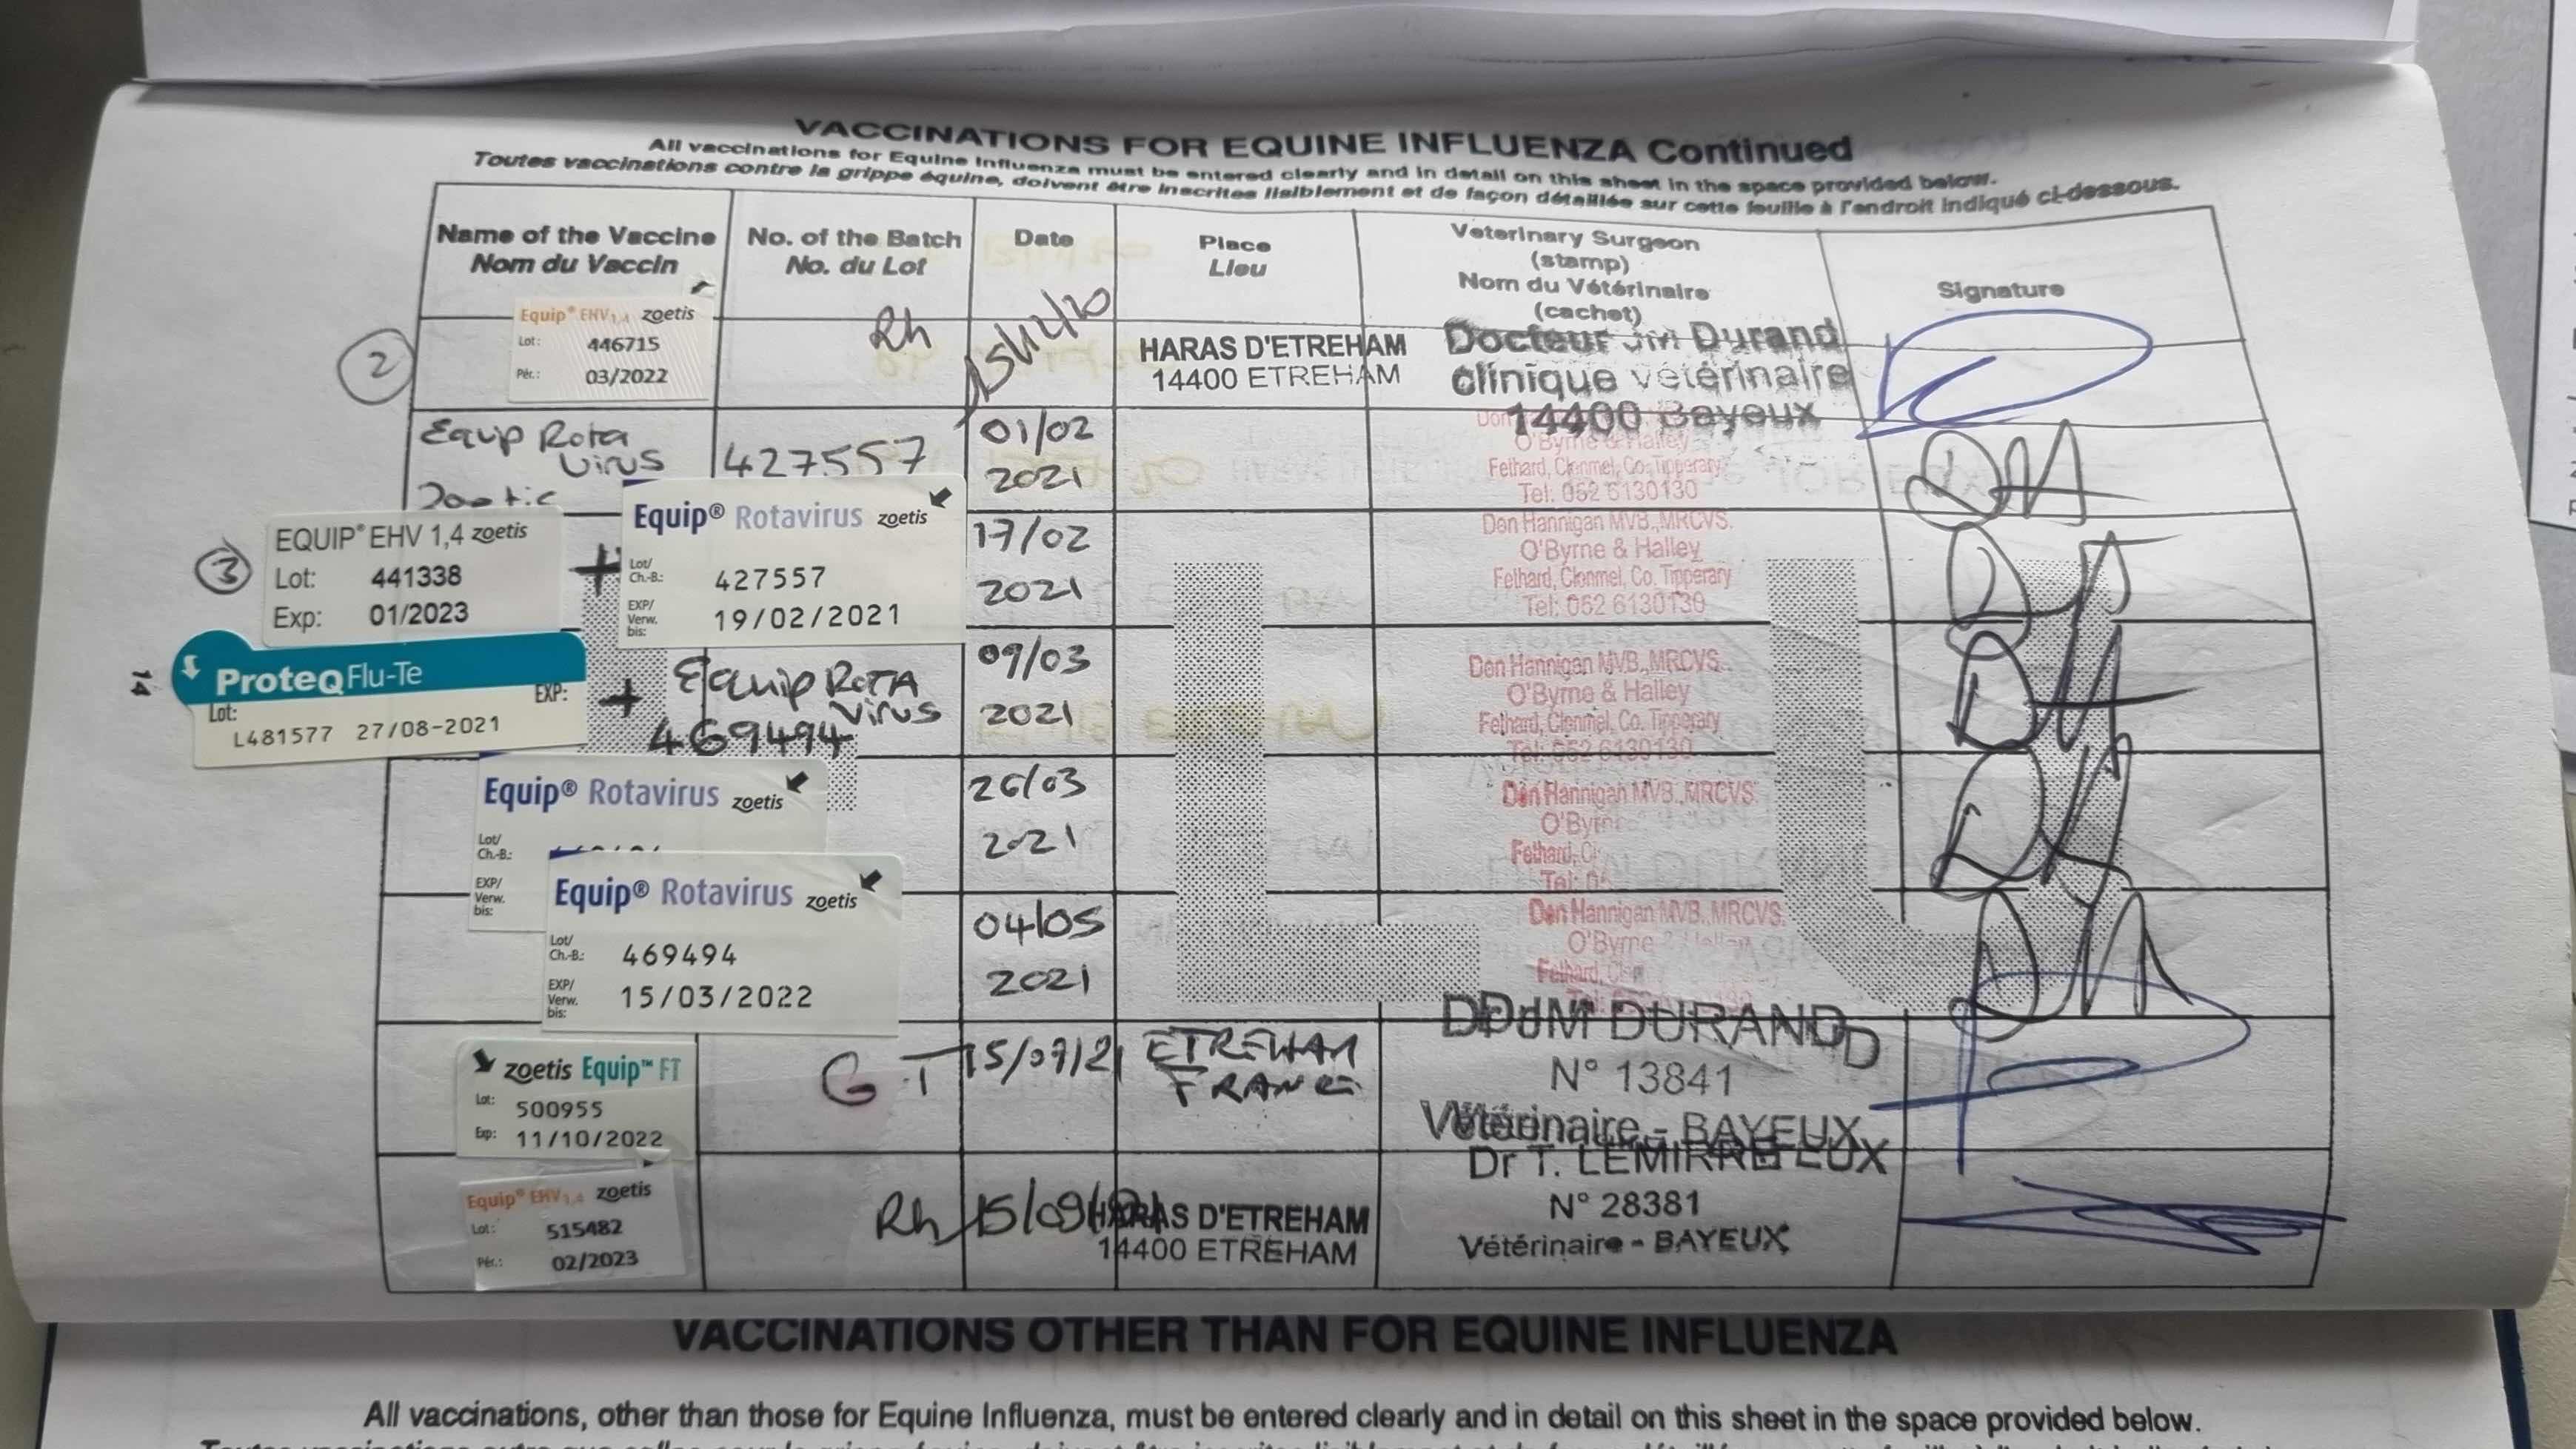 VACCINATIONS FOR EQUINE INFLUENZA Continued
All vaccinations for Equine Influenza must be entered clearly and in detail on this sheet in the space provided below.
Toutes vaccinations contre la grippe équine, doivent être inscrites lisiblement et de façon détaillée sur cette feuille à l'endroit indiqué ci-dessous.
Name of the Vaccine
Nom du Vaccin
No. of the Batch
No. du Lot
Date
Place
Lieu
Veterinary Surgeon
(stamp)
Nom du Vétérinaire
(cachet)
Signature
2
Equip® EHV1,4 zoetis
Lot: 446715
Pér.: 03/2022
Rh
15/12/20
HARAS D'ETREHAM
14400 ETREHAM
Docteur JM Durand
clinique vétérinaire
14400 Bayeux
Equip Rota
Virus
Zoetic
427557
01/02
2021
O'Byrne & Halley
Felhard, Clonmel, Co. Tipperary
Tel: 052 6130130
3
EQUIP® EHV 1,4 zoetis
Lot: 441338
Exp: 01/2023
+
Equip® Rotavirus zoetis
Lot/
Ch.-B.: 427557
EXP/
Verw.
bis: 19/02/2021
17/02
2021
Dan Hannigan MVB., MRCVS.
O'Byrne & Halley
Felhard, Clonmel, Co. Tipperary
Tel: 052 6130130
14
ProteqFlu-Te
Lot: EXP:
L481577 27/08-2021
+
Equip ROTA
Virus
469494
09/03
2021
Dan Hannigan MVB., MRCVS.
O'Byrne & Halley
Felhard, Clonmel, Co. Tipperary
Tel: 052 6130130
Equip® Rotavirus zoetis
Lot/
Ch.-B.:
EXP/
Verw.
bis:
26/03
2021
Dan Hannigan MVB., MRCVS.
Equip® Rotavirus zoetis
Lot/
Ch.-B.: 469494
EXP/
Verw.
bis: 15/03/2022
04/05
2021
Dan Hannigan MVB., MRCVS.
O'Byrne
zoetis Equip™ FT
Lot: 500955
Exp: 11/10/2022
G T
15/07/21
ETREHAM
FRANCE
DURAND
N° 13841
Vétérinaire - BAYEUX
Equip® EHV1,4 zoetis
Lot: 515482
Pér.: 02/2023
Rh
15/09/
HARAS D'ETREHAM
14400 ETREHAM
Dr T. LEMIRRE
N° 28381
Vétérinaire - BAYEUX
VACCINATIONS OTHER THAN FOR EQUINE INFLUENZA
All vaccinations, other than those for Equine Influenza, must be entered clearly and in detail on this sheet in the space provided below.